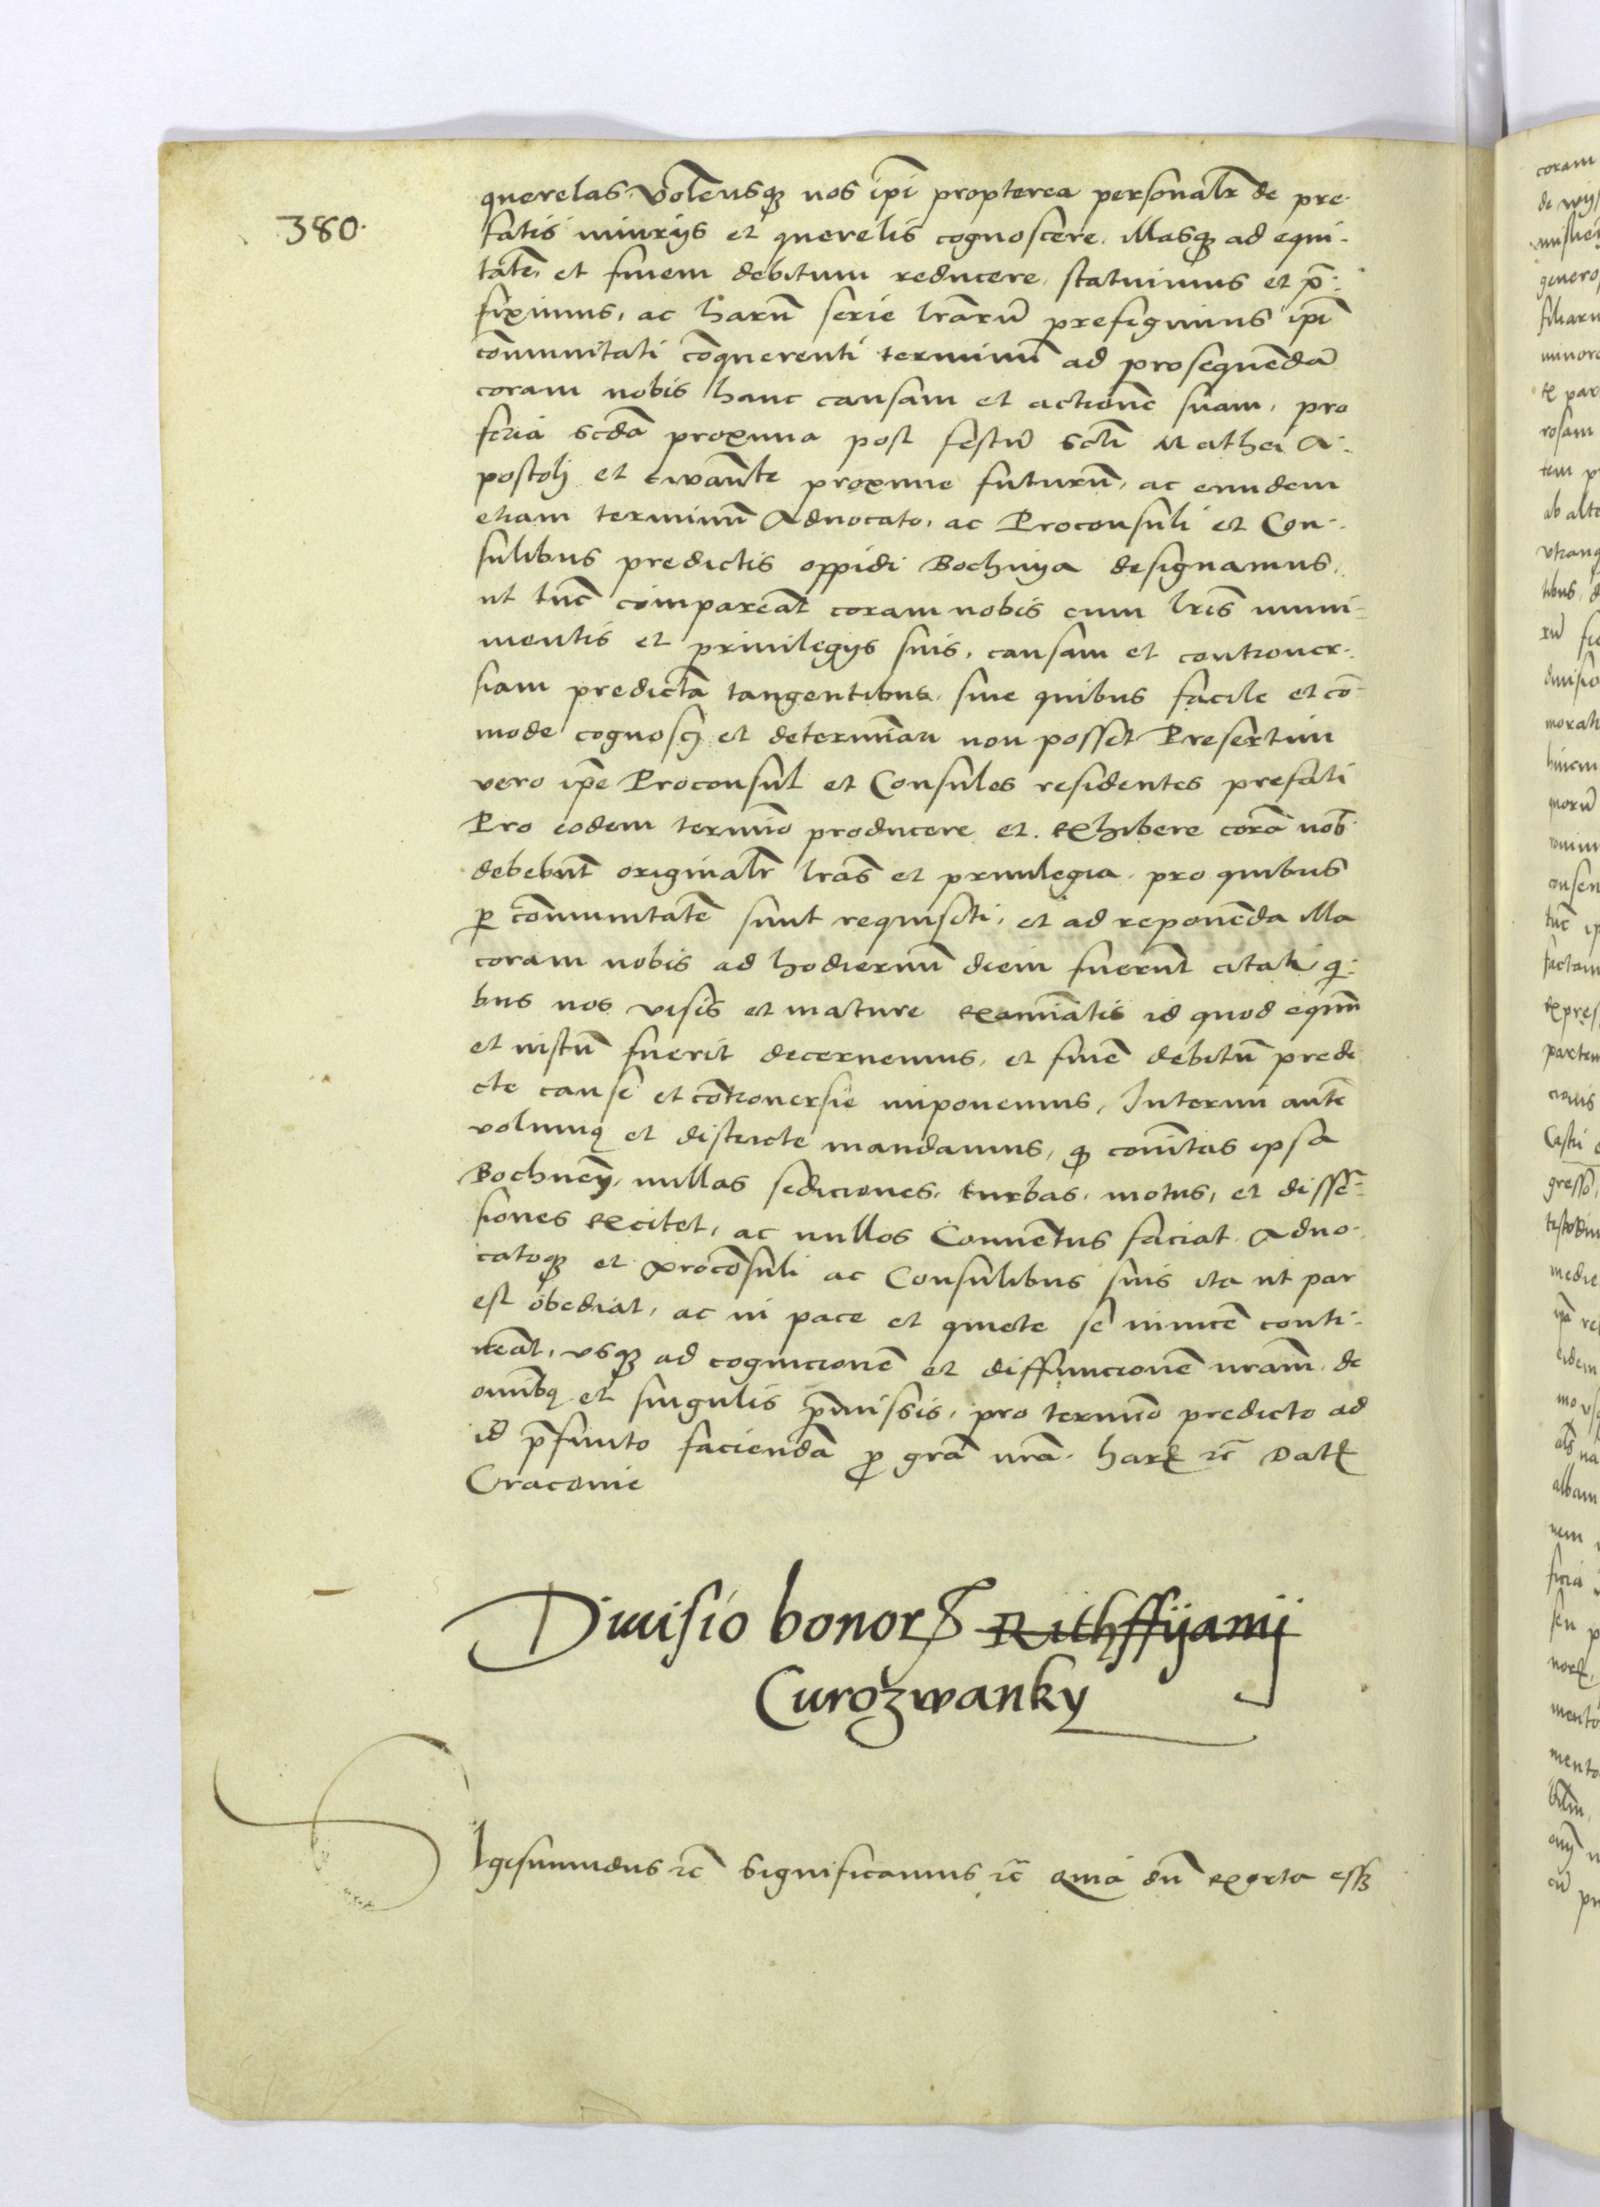 380.
querelas. Volensq₃ nos ip̄i propterea personalr̄ de pre-
fatis iniurijs et querelis cognoscere. illasq₃ ad equi-
tatē et finem debitum reducere, statuimus et p̄-
fiximus, ac harū serie lr̄arū prefigimus ip̄i
cōmunitati cōquerenti terminū ad prosequendā
coram nobis hanc causam et actionē suam, pro
feria scd̄a proxima post festū sctī Mathei A-
postolj et ewāng̃te proxime futurū, ac eundem
etiam terminū Aduocato, ac Proconsuli et Con-
sulibus predictis oppidi Bochnya designamus,
ut tūc compareāt coram nobis cum lr̄is muni-
mentis et priuilegijs suis, causam et controuer-
siam predictā tangentibus, sine quibus facile et cō-
mode cognoscj et determinari non posset Presertim
vero ip̄e Proconsul et Consules residentes prefati
Pro eodem termīo producere et exhibere corā nob̄
debebūt originalr̄ lr̄as et priuilegia, pro quibus
ꝑ cōmunitatē sunt requisiti, et ad reponēda illa
coram nobis ad hodiernū diem fuerūt citati, q̄i-
bus nos visis et mature examīatis id quod equū
et iustū fuerit decernemus, et finē debitū predi
cte cause et cōtrouersie imponemus, Interim autē
volumꝯ et districte mandamus, ꝙ cōitas ipsa
Bochneñ, nullas sediciones, turbas, motus, et dissē-
siones excitet, ac nullos Conuētus faciat Aduo-
catoq₃ et procōsuli ac Consulibus suis ita ut par
est obediat, ac in pace et quiete se inuicē conti-
neāt, usq₃ ad cognicionē et diffinicionē nr̄am de
omībꝯ et singulis p̄missis, pro termīo predicto ad
id p̄finito faciendā ꝓ gr̄a nr̄a. harꝝ etc̄ Datꝝ
Cracouie
Diuisio bonorꝝ Rithffyamj
Curozwanky
Sigismundus etc̄ Significamus etc̄ Quia dū exorta ess₃